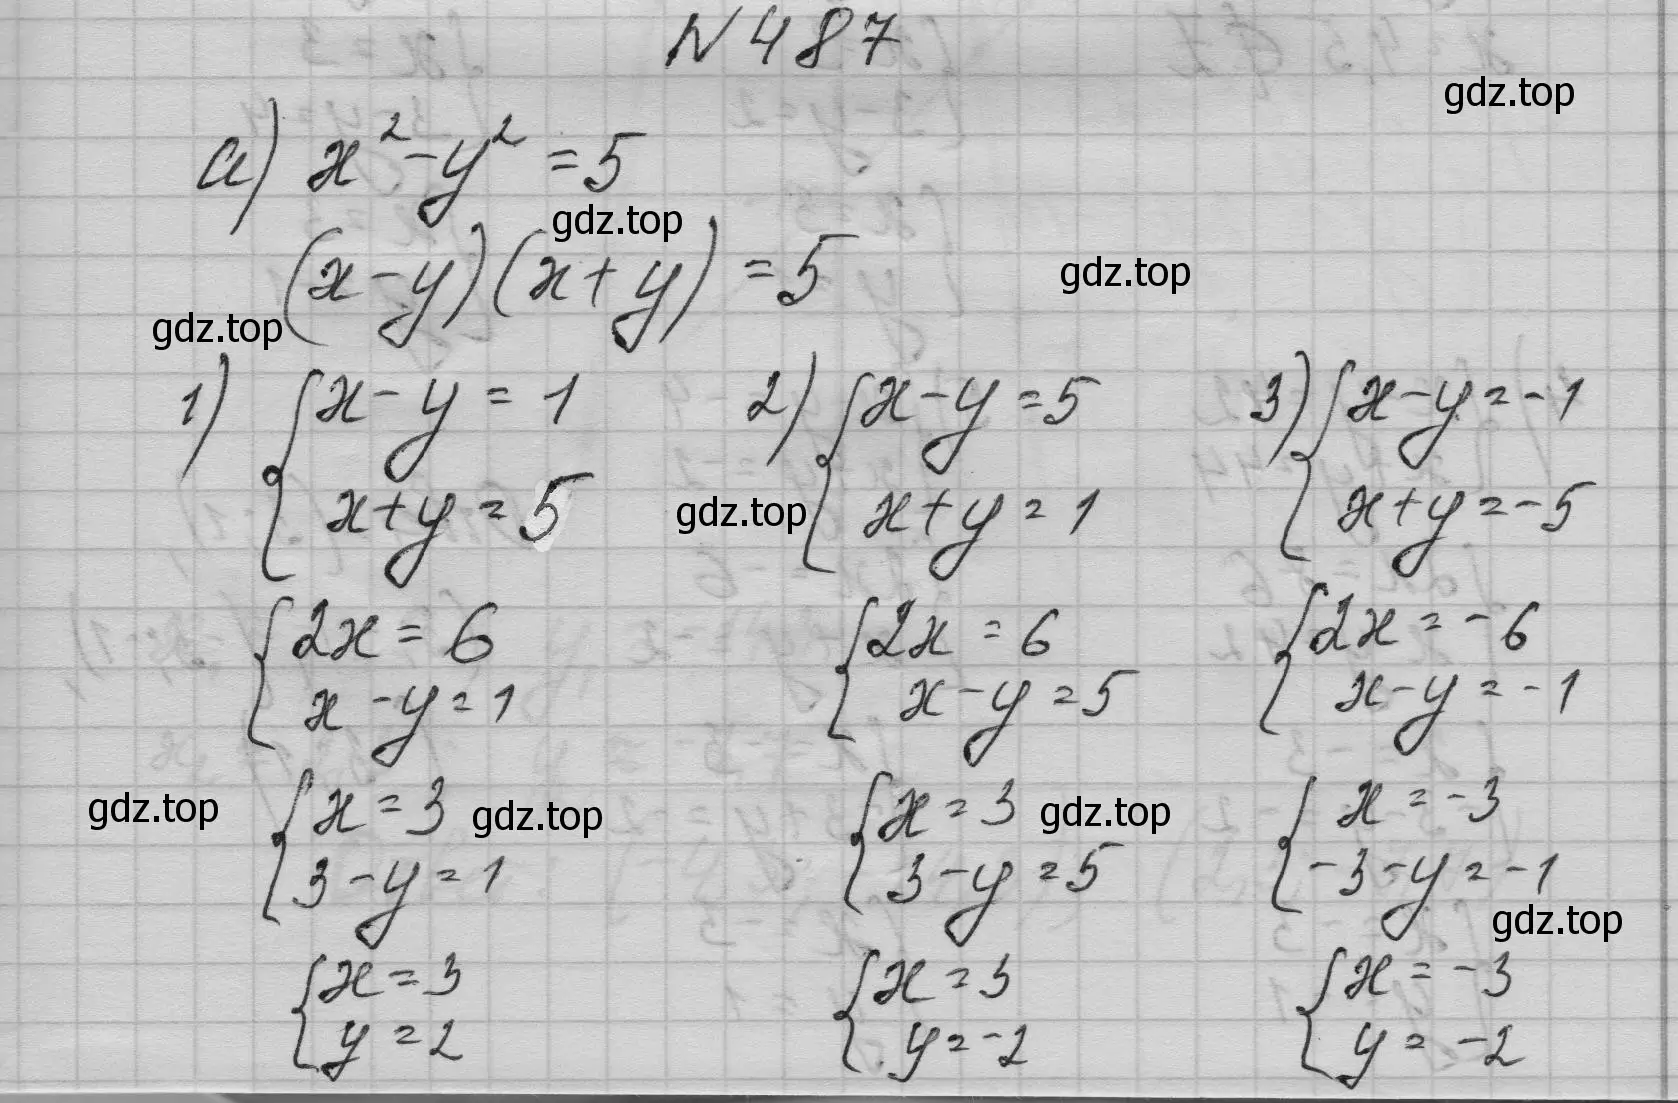 N 487
gdz.top
а) x² - y² = 5
gdz.top
(x - y)(x + y) = 5
gdz.top
gdz.top
1) { x - y = 1
x + y = 5
2) { x - y = 5
x + y = 1
3) { x - y = -1
x + y = -5
gdz.top
{ 2x = 6
x - y = 1
{ 2x = 6
x - y = 5
{ 2x = -6
x - y = -1
gdz.top
{ x = 3
3 - y = 1
gdz.top
{ x = 3
3 - y = 5
gdz.top
{ x = -3
-3 - y = -1
gdz.top
{ x = 3
y = 2
{ x = 3
y = -2
{ x = -3
y = -2